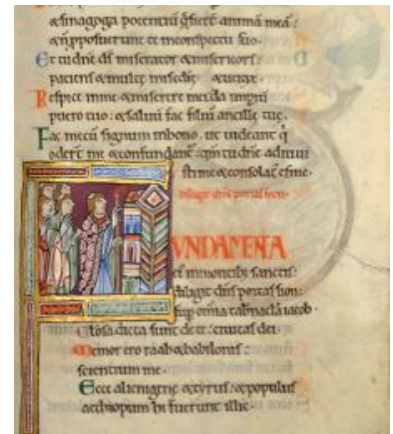 & sinagoga potentiū q̄sierт animā meā:
& ñ proposuerunt te in conspectu suo.
Et tu dn̄e d̄s miserator & misericors:
patiens & multę misc̄dię & uerax.
Respice in me & miserere mei da imperiū
puero tuo: & saluū fac filiū ancillę tuę.
Fac mecū signum in bono. ut uideant q̄
oderт me & confundant᷑: qm̄ tu dn̄e adiuuisti
me & consolat᷑ es me.
diligit dn̄s portas sion.
UNDAMENA
ei᷑ in montib; sanctis:
diligit dn̄s portas sion:
sup̄ omia tab̄nacl̄a iacob.
Gl̄osa dicta sunt de te: ciuitas dei.
Memor ero raab & babilonis:
scientium me.
Ecce alienigenę & tyrus: & populus
aethiopum hi fuerunt illic.